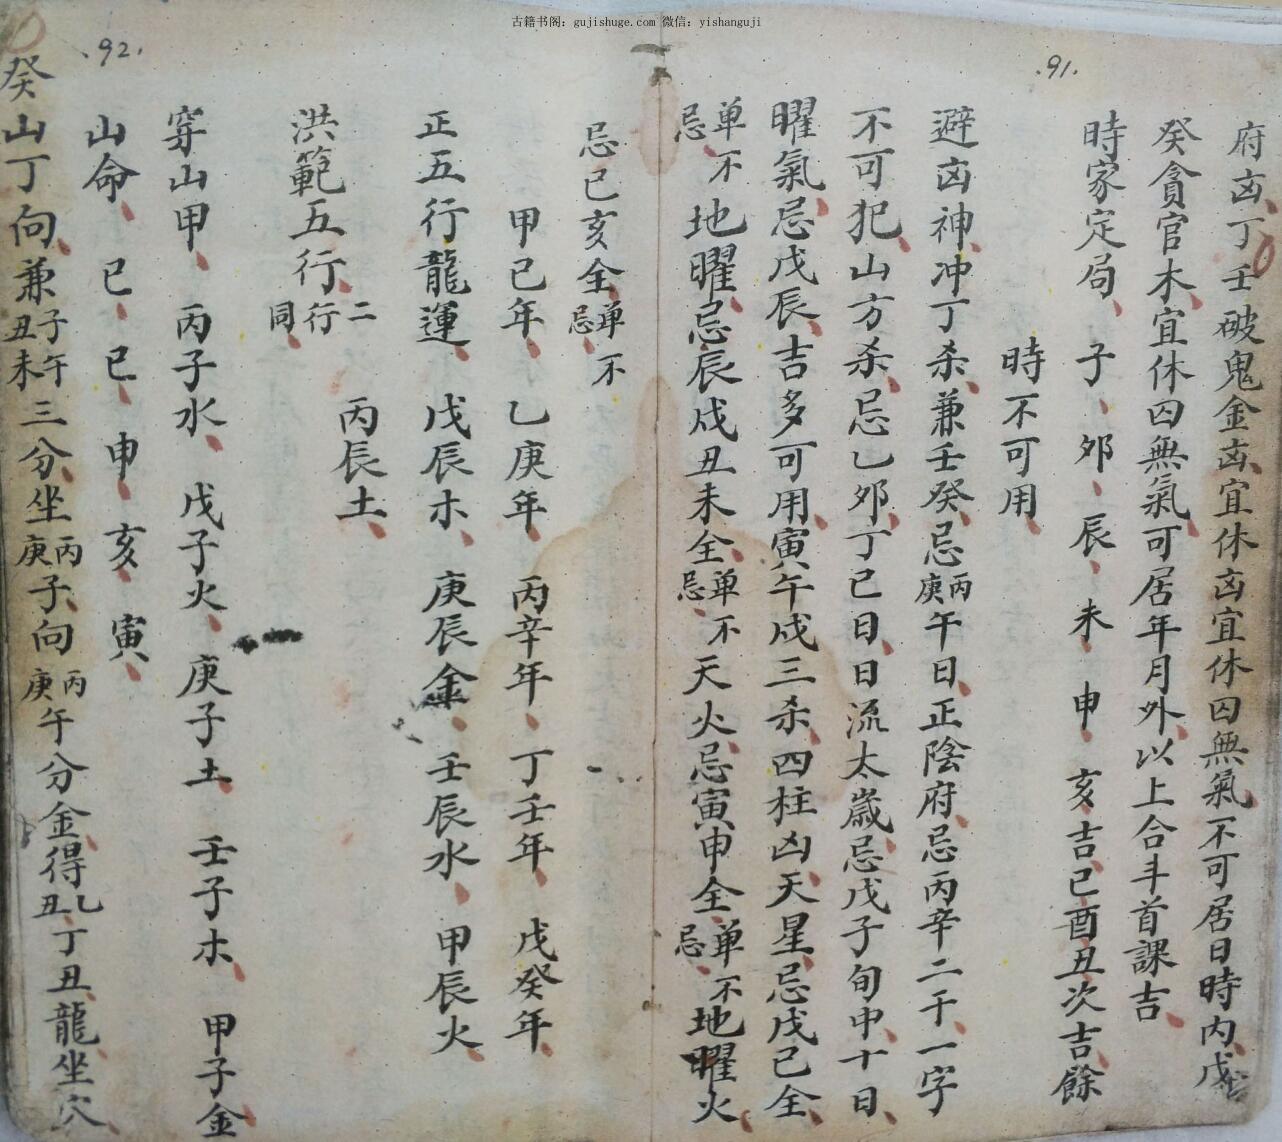 古籍书阁：gujishuge.com 微信：yishanguji
.91.
府凶丁壬破鬼金凶宜休凶宜休囚無氣不可居日時内戊
癸貪官木宜休囚無氣可居年月外以上合斗首課吉
時家定局、子、夘、辰、未、申、亥吉、巳酉丑次吉、餘
時不可用
避凶神、冲丁杀、兼壬癸忌丙庚午日、正陰府忌丙辛二干、一字
不可犯、山方杀、忌乙夘、丁巳日、日流太歲、忌戊子旬中、十日、
曜氣、忌戊辰、吉多可用、寅午戍三杀、四柱凶天星、忌戊己全、
单不忌、地曜、忌辰戍丑未全、单不忌、天火、忌寅申全、单不忌、地曜火
忌巳亥全、单不忌、
.92.
甲己年、乙庚年、丙辛年、丁壬年、戊癸年、
正五行龍運、戊辰木、庚辰金、壬辰水、甲辰火、
洪範五行、二行同、丙辰土、
穿山甲、丙子水、戊子火、庚子土、壬子木、甲子金、
山命、巳、巳、申、亥、寅、
癸山丁向、兼子午丑未三分、坐丙庚子、向丙庚午分金、得乙丑、丁丑、龍坐穴、